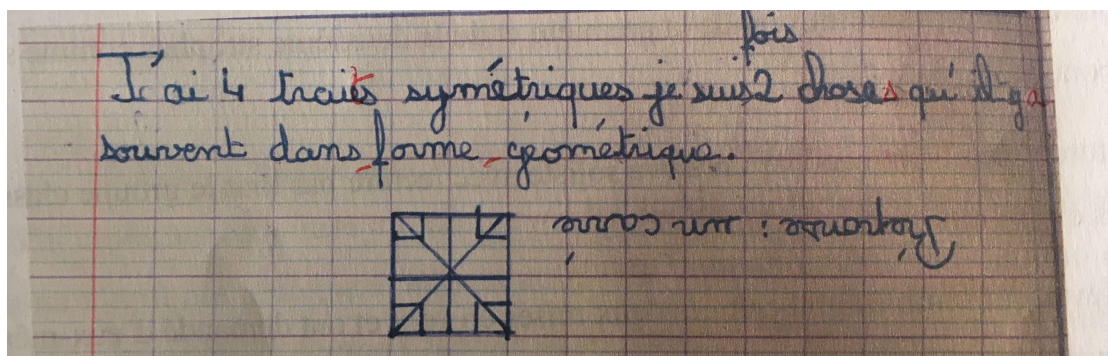 fois
J'ai 4 traits symétriques je suis 2 choses qu'il y a
souvent dans forme géométrique.
Réponse : un carré